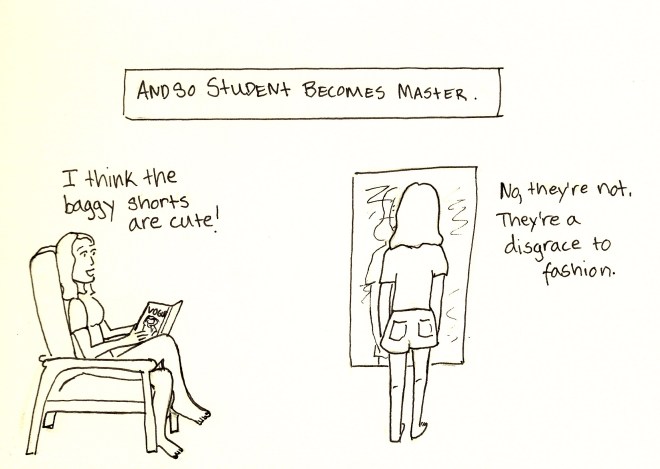 AND SO STUDENT BECOMES MASTER.
I think the
baggy shorts
are cute!
No, they're not.
They're a
disgrace to
fashion.
VOGUE